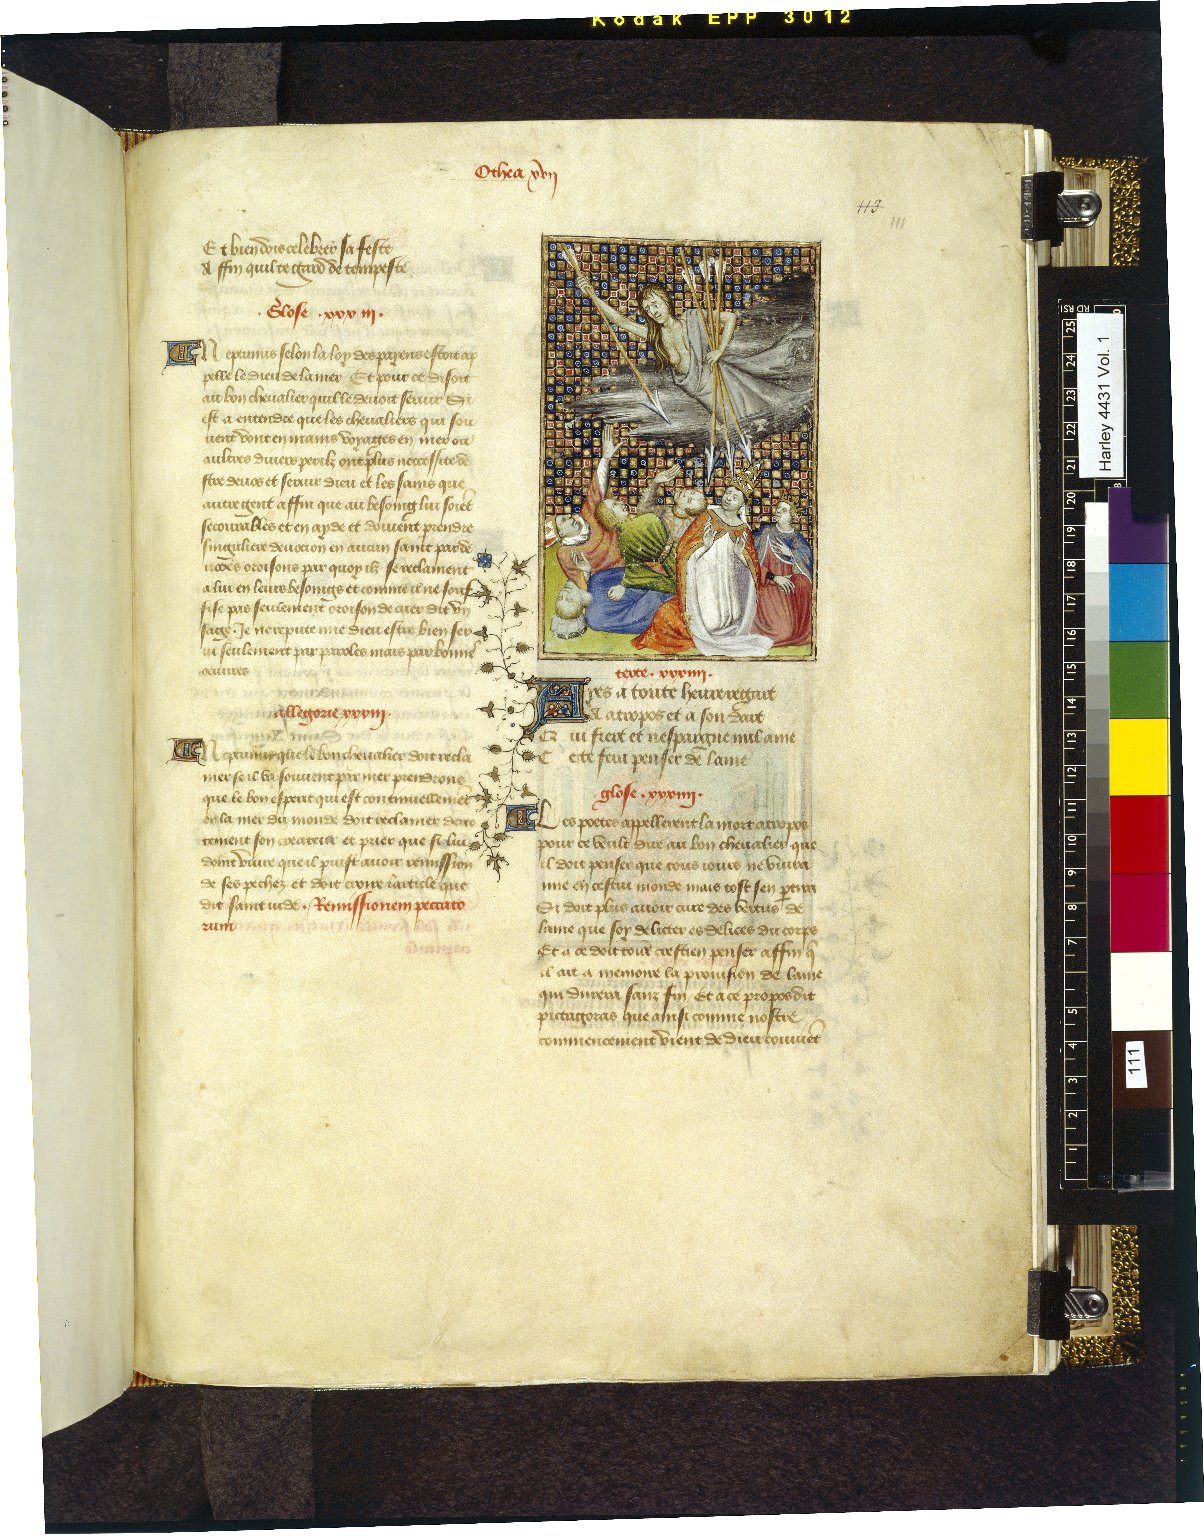 Kodak EPP 3012
Othea xvii
113
111
Et bien dois celebrer sa feste
Affin quil te gard de tempeste
Glose .xxxiii.
Neptunus selon la loy des payens estoit ap
pelle le dieu de la mer Et pour ce disoit
au bon chevalier quil le devoit servir Si
est a entendre que les chevaliers qui sou
vent vont en mains voyages en mer ou
aultres divers perilz ont plus neccessite de
stre devos et servir dieu et les sains que
autre gent affin que au besoing lui soiēt
secourables et en ayde et doivent prendre
singuliere devocion en aucun saint par de
votes oroisons par quoy ilz se reclament
a lui en leurs besoings et comme il ne souf
fise pas seulement oroison de cuer dit un
sage. Je ne repute mie dieu estre bien ser
vi seulement par paroles mais par bonne
œuvres
Allegorie xxxiii.
Neptunus que le bon chevalier doit recla
mer se il va souvent par mer prendrons
que le bon esperit qui est continuellemēt
en la mer du monde doit reclamer devo
tement son createur et prier que si lui
doint vivre que il puist avoir remission
de ses pechez et doit croire larticle que
dit saint iude. Remissionem peccato
rum
texte. xxxiiii.
Ayes a toute heure regart
A atropos et a son dart
Qui fiert et nespargne nul ame
Ce te fera penser de lame
glose .xxxiiii.
Les poetes appellerent la mort atropos
pour ce veult dire au bon chevalier que
il doit penser que tous iours ne vivra
mie en cestui monde mais tost sen ꝑtira
Si doit plus avoir cure des vertus de
lame que soy deliter es delices du corps
Et a ce doit tout crestien penser affin q̄
il ait a memoire la provision de lame
qui durera sanz fin Et a ce propos dit
pictagoras que ainsi comme nostre
commencement vient de dieu couvіēt
Harley 4431 Vol. 1
111
25
24
23
22
21
20
19
18
17
16
15
14
13
12
11
10
9
8
7
5
4
3
2
1